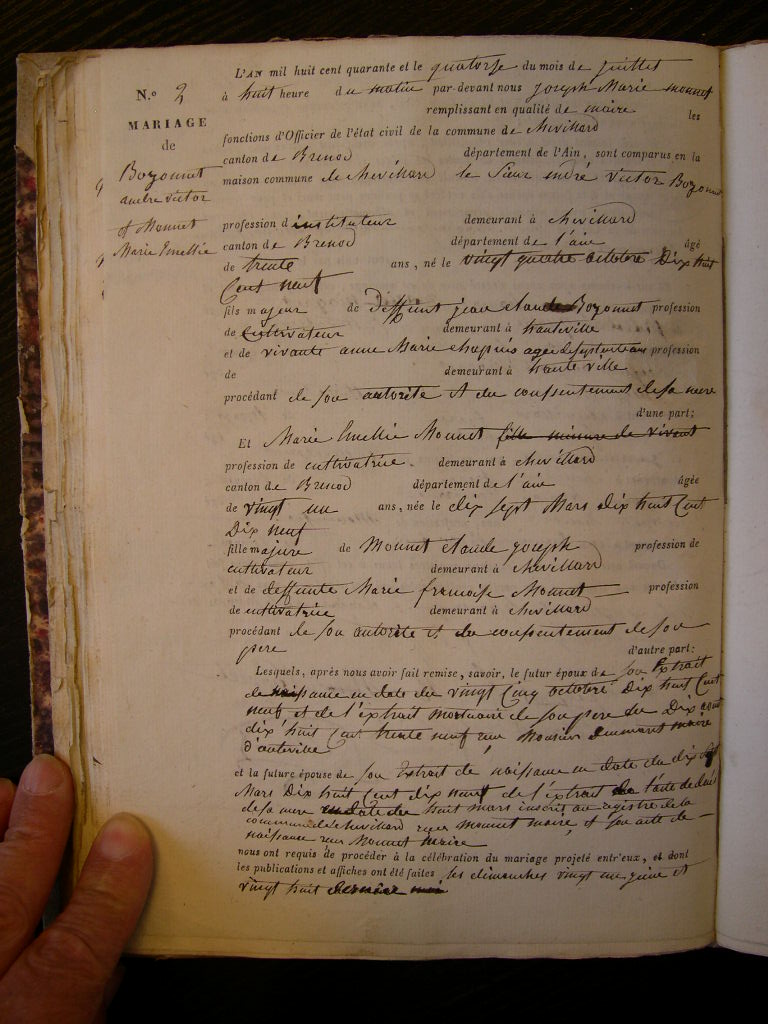 L'AN mil huit cent quarante et le quatorze du mois de juillet
N.o 2
à huit heure du matin par-devant nous joseph Marie monnet
remplissant en qualité de maire les
MARIAGE
de
fonctions d'Officier de l'état civil de la commune de chevillard
canton de Brenod département de l'Ain, sont comparus en la
Bozonnet
andre victor
maison commune de chevillard le Sieur andré victor Bozonnet
et Monnet
Marie Emellie
profession d instituteur demeurant à chevillard
canton de Brenod département de l'ain âgé
de trente ans, né le vingt quatre octobre Dix huit
Cent neuf
fils majeur de deffunt jean claude Bozonnet profession
de Cultivateur demeurant à hauteville
et de vivante anne Marie chapuis agée de septente ans profession
de demeurant à haute ville
procédant de son autorité et du consentement de sa mere
d'une part;
Et Marie Emellie Monnet fille mineure de vivant
profession de cultivatrice. demeurant à chevillard
canton de Brenod département de l'ain âgée
de vingt un ans, née le dix sept Mars dix huit Cent
Dix neuf
fille majure de Monnet claude joseph profession de
cultivateur demeurant à chevillard
et de deffunte Marie francoise Monnet profession
de cultivatrice demeurant à chevillard
procédant de son autorité et du consentement de son
pere d'autre part:
Lesquels, après nous avoir fait remise, savoir, le futur époux de son Extrait
de naissance en date du vingt Cinq octobre Dix huit Cent
neuf et de l'extrait mortuaire de son pere du Dix aout
dix huit Cent trente neuf Monsieur maire
d'auteville
et la future épouse de son Extrait de naissance en date du dix sept
Mars Dix huit Cent dix neuf de l'extrait de l'acte de décés
de sa mere en date du huit mars inscrit au registre de la
commune de chevillard Monnet maire, et son acte de
naissance Monnet maire
nous ont requis de procéder à la célébration du mariage projeté entr'eux, et dont
les publications et affiches ont été faites les dimanches vingt un juin et
vingt huit dernier moi